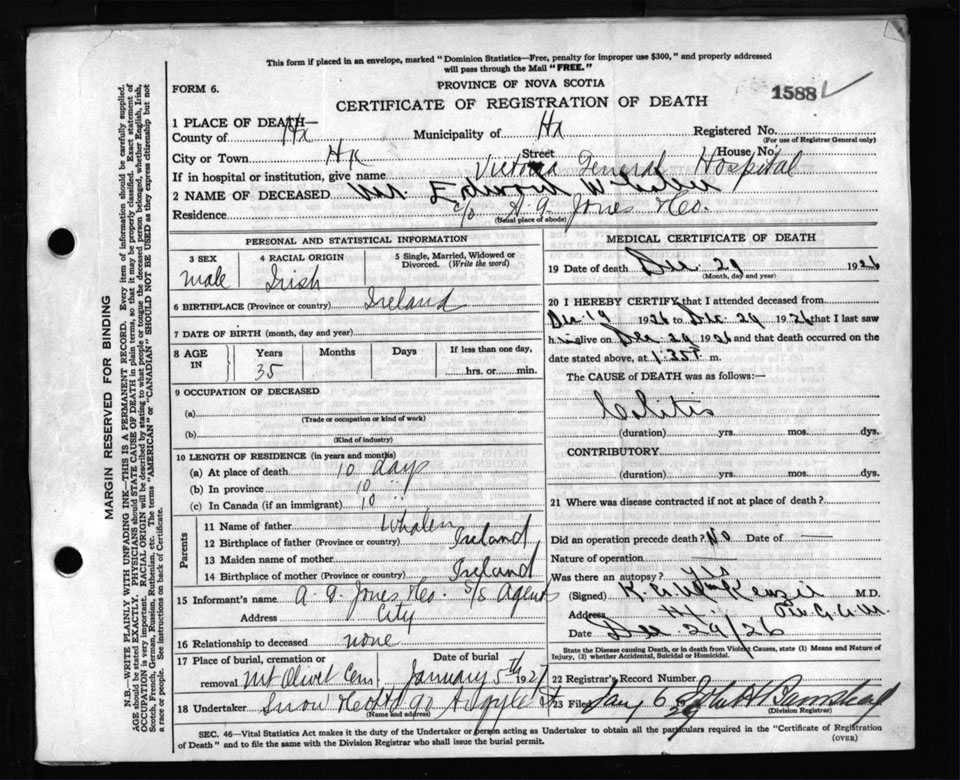 This form if placed in an envelope, marked "Dominion Statistics—Free, penalty for improper use $300," and properly addressed
will pass through the Mail "FREE."
FORM 6.
PROVINCE OF NOVA SCOTIA
CERTIFICATE OF REGISTRATION OF DEATH
1588
1 PLACE OF DEATH—
County of Hx Municipality of Hx Registered No.
(For use of Registrar General only)
City or Town Hx Street House No.
If in hospital or institution, give name Victoria General Hospital
2 NAME OF DECEASED Mr. Edward Whalen
Residence c/o A. G. Jones & Co.
(Usual place of abode)
PERSONAL AND STATISTICAL INFORMATION
3 SEX male
4 RACIAL ORIGIN Irish
5 Single, Married, Widowed or Divorced. (Write the word)
6 BIRTHPLACE (Province or country) Ireland
7 DATE OF BIRTH (month, day and year)
8 AGE IN Years 35 Months Days If less than one day, hrs. or min.
9 OCCUPATION OF DECEASED
(a)
(Trade or occupation or kind of work)
(b)
(Kind of industry)
10 LENGTH OF RESIDENCE (in years and months)
(a) At place of death 10 days
(b) In province 10 "
(c) In Canada (if an immigrant) 10 "
Parents
11 Name of father Whalen
12 Birthplace of father (Province or country) Ireland
13 Maiden name of mother
14 Birthplace of mother (Province or country) Ireland
15 Informant's name A. G. Jones & Co. S/S Agents
Address City
16 Relationship to deceased none
17 Place of burial, cremation or removal Mt Olivet Cem. Date of burial January 5th 1927
18 Undertaker Snow & Co Ltd 90 Argyle St
(Name and address)
MEDICAL CERTIFICATE OF DEATH
19 Date of death Dec. 29 1926
(Month, day and year)
20 I HEREBY CERTIFY that I attended deceased from
Dec. 19 1926 to Dec. 29 1926 that I last saw
him alive on Dec 29 1926 and that death occurred on the
date stated above, at 1.25 P. m.
The CAUSE of DEATH was as follows:—
Colitis
(duration) yrs. mos. dys.
CONTRIBUTORY
(duration) yrs. mos. dys.
21 Where was disease contracted if not at place of death?
Did an operation precede death? No Date of —
Nature of operation —
Was there an autopsy? yes
(Signed) MacKenzie M.D.
Address Hx.
Date Dec. 29/26
State the Disease causing Death, or in death from Violent Causes, state (1) Means and Nature of
Injury, (2) whether Accidental, Suicidal or Homicidal.
22 Registrar's Record Number
23 Filed Jan 6 27 John
SEC. 46—Vital Statistics Act makes it the duty of the Undertaker or person acting as Undertaker to obtain all the particulars required in the "Certificate of Registration
of Death" and to file the same with the Division Registrar who shall issue the burial permit.
(OVER)
MARGIN RESERVED FOR BINDING
N.B.—WRITE PLAINLY WITH UNFADING INK—THIS IS A PERMANENT RECORD. Every item of information should be carefully supplied.
AGE should be stated EXACTLY. PHYSICIANS should STATE CAUSE OF DEATH in plain terms, so that it may be properly classified. Exact statement of
OCCUPATION is very important. RACIAL ORIGIN will be described by stating to what people or tongue the deceased person belonged, whether English, Irish,
Scotch, French, German, Russian, Ruthenian, etc. The terms "AMERICAN" or "CANADIAN" SHOULD NOT BE USED as they express citizenship but not
a race or people. See instructions on back of Certificate.